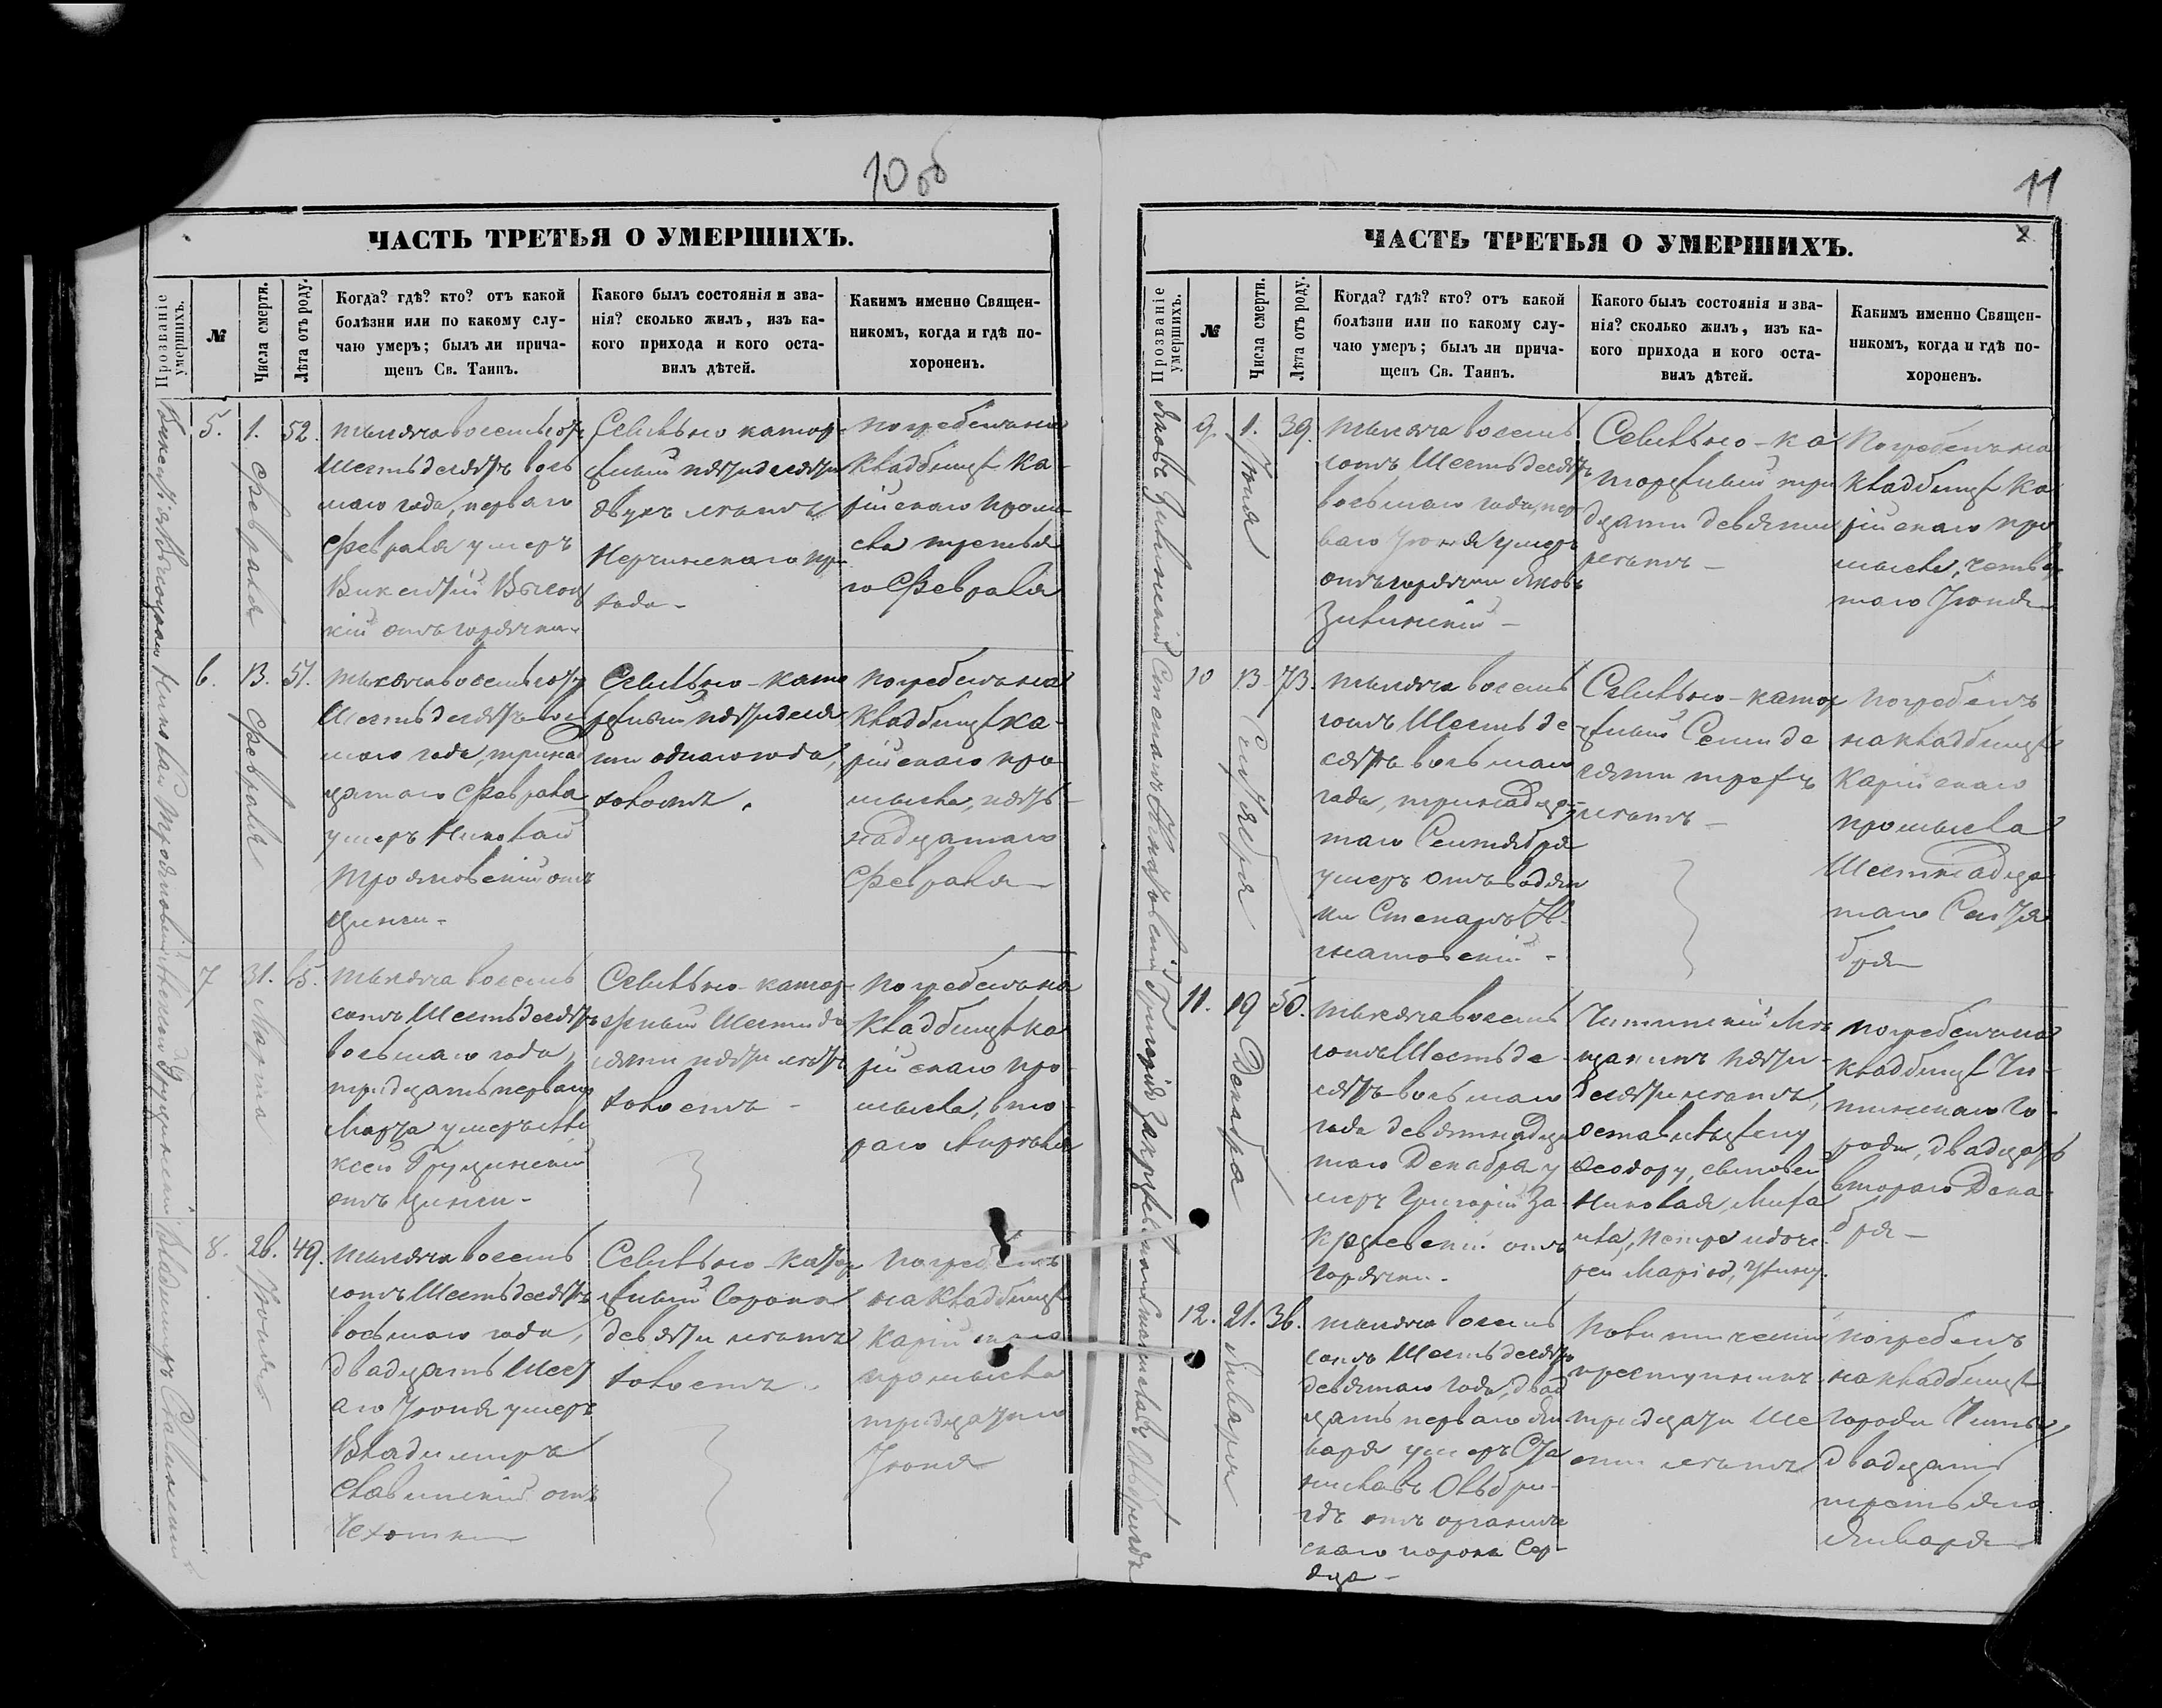 10 об
ЧАСТЬ ТРЕТЬЯ О УМЕРШИХЪ.
Прозваніе умершихъ.
№
Числа смерти.
Лѣта отъ роду.
Когда? гдѣ? кто? отъ какой
болѣзни или по какому слу-
чаю умеръ; былъ ли прича-
щенъ Св. Таинъ.
Какого былъ состоянія и зва-
нія? сколько жилъ, изъ ка-
кого прихода и кого оста-
вилъ дѣтей.
Какимъ именно Священ-
никомъ, когда и гдѣ по-
хороненъ.
5.
1. Февраля
52.
тысяча восемьсотъ
шестьдесятъ вось
маго года, перваго
Февраля умеръ
Викентій Высоц
кій отъ горячки
Ссыльно катор-
жный пятидесяти
двухъ летъ
Нерчинскаго
погребенъ на
кладбищѣ Ка-
рійскаго промы-
сла третья
го Февраля
Николай Трояновскій
6.
13. Февраля
51.
тысяча восемьсотъ
шестьдесятъ вось
маго года, тринад
цатаго Февраля
умеръ Николай
Трояновскій отъ
цынги -
Ссыльно-като
ржный пятидеся
ти одного года,
холостъ.
погребенъ на
кладбищѣ Ка-
рійскаго про
мысла, пят-
надцатаго
Февраля
7
31. Марта
65.
тысяча восемь
сотъ шестьдесятъ
восьмаго года,
тридцать перваго
Марта умеръ Але
ксей Грудинскій
отъ цынги -
Ссыльно-катор
жный шестиде
сяти пяти летъ
холостъ -
погребенъ на
кладбищѣ Ка
рійскаго про-
мысла, вто-
раго Апреля
Владимиръ Славинскій
8.
26. Іюня
49.
тысяча восемь
сотъ шестьдесятъ
восьмаго года,
двадцать шест
аго Іюня умеръ
Владимиръ
Славинскій отъ
чехотки
Ссыльно-катор
жный сорока
девяти летъ
холостъ.
погребенъ
на кладбищѣ
Карійскаго
промысла
тридцатаго
Іюня
11
ЧАСТЬ ТРЕТЬЯ О УМЕРШИХЪ.
Прозваніе умершихъ.
№
Числа смерти.
Лѣта отъ роду.
Когда? гдѣ? кто? отъ какой
болѣзни или по какому слу-
чаю умеръ; былъ ли прича-
щенъ Св. Таинъ.
Какого былъ состоянія и зва-
нія? сколько жилъ, изъ ка-
кого прихода и кого оста-
вилъ дѣтей.
Какимъ именно Священ-
никомъ, когда и гдѣ по-
хороненъ.
9
1. Іюня
39.
тысяча восемь
сотъ шестьдесятъ
восьмаго года, пер
ваго Іюня умеръ
отъ горячки Яковъ
Ссыльно-ка
торжный три
дцати девяти
летъ -
Погребенъ на
кладбищѣ Ка
рійскаго про
мысла, четвер
таго Іюня
10
13 Сентября
73.
тысяча восемь
сотъ шестьде-
сятъ восьмаго
года, тринадца-
таго Сентября
умеръ отъ водян
ки Степанъ
Ссыльно-катор
жный семиде
сяти трехъ
летъ -
погребенъ
на кладбищѣ
Карійскаго
промысла
шестнадца
таго Сентя
бря
Григорій Закржевскій
11.
19 Декабря
50.
тысяча восемь
сотъ шестьде-
сятъ восьмаго
года девятнадца
таго Декабря у
меръ Григорій За-
кржевскій отъ
горячки.
Читинскій ме
щанинъ пяти-
десяти летъ,
оставилъ жену
Феодору, сыновей
Николая, Миха
ила, Петра и доче
рей Марію,
погребенъ на
кладбищѣ Чи-
тинскаго го-
рода, двадцать
втораго Дека-
бря -
12.
21. Января
36.
тысяча восемь
сотъ шестьдесятъ
девятаго года, двад
цать перваго Ян
варя умеръ Ста
ниславъ
отъ органиче
скаго порока сер-
дца -
Политическій
преступникъ
тридцати ше
сти летъ
погребенъ
на кладбищѣ
города Читы
двадцать
третьяго
Января